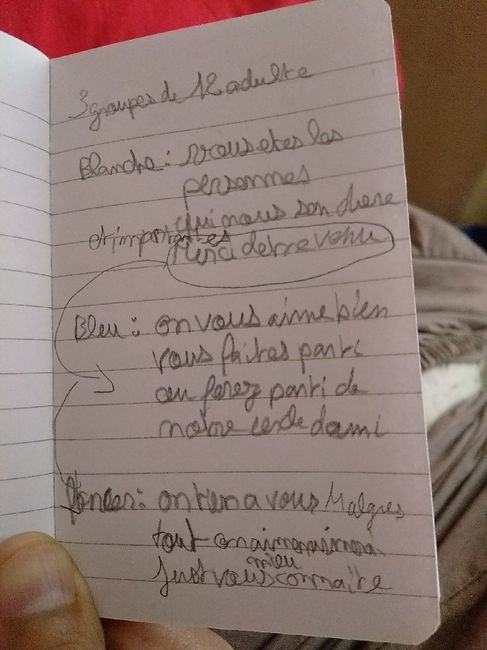 3 groupes de 12 adulte
Blanche : vous etes les
personnes
qui nous son chere
et importantes
Merci detre venu
Bleu : on vous aime bien
vous faites parti
ou ferez parti de
notre cercle dami
: on tien a vous Malgres
tout on
mieu
Just vous connaitre